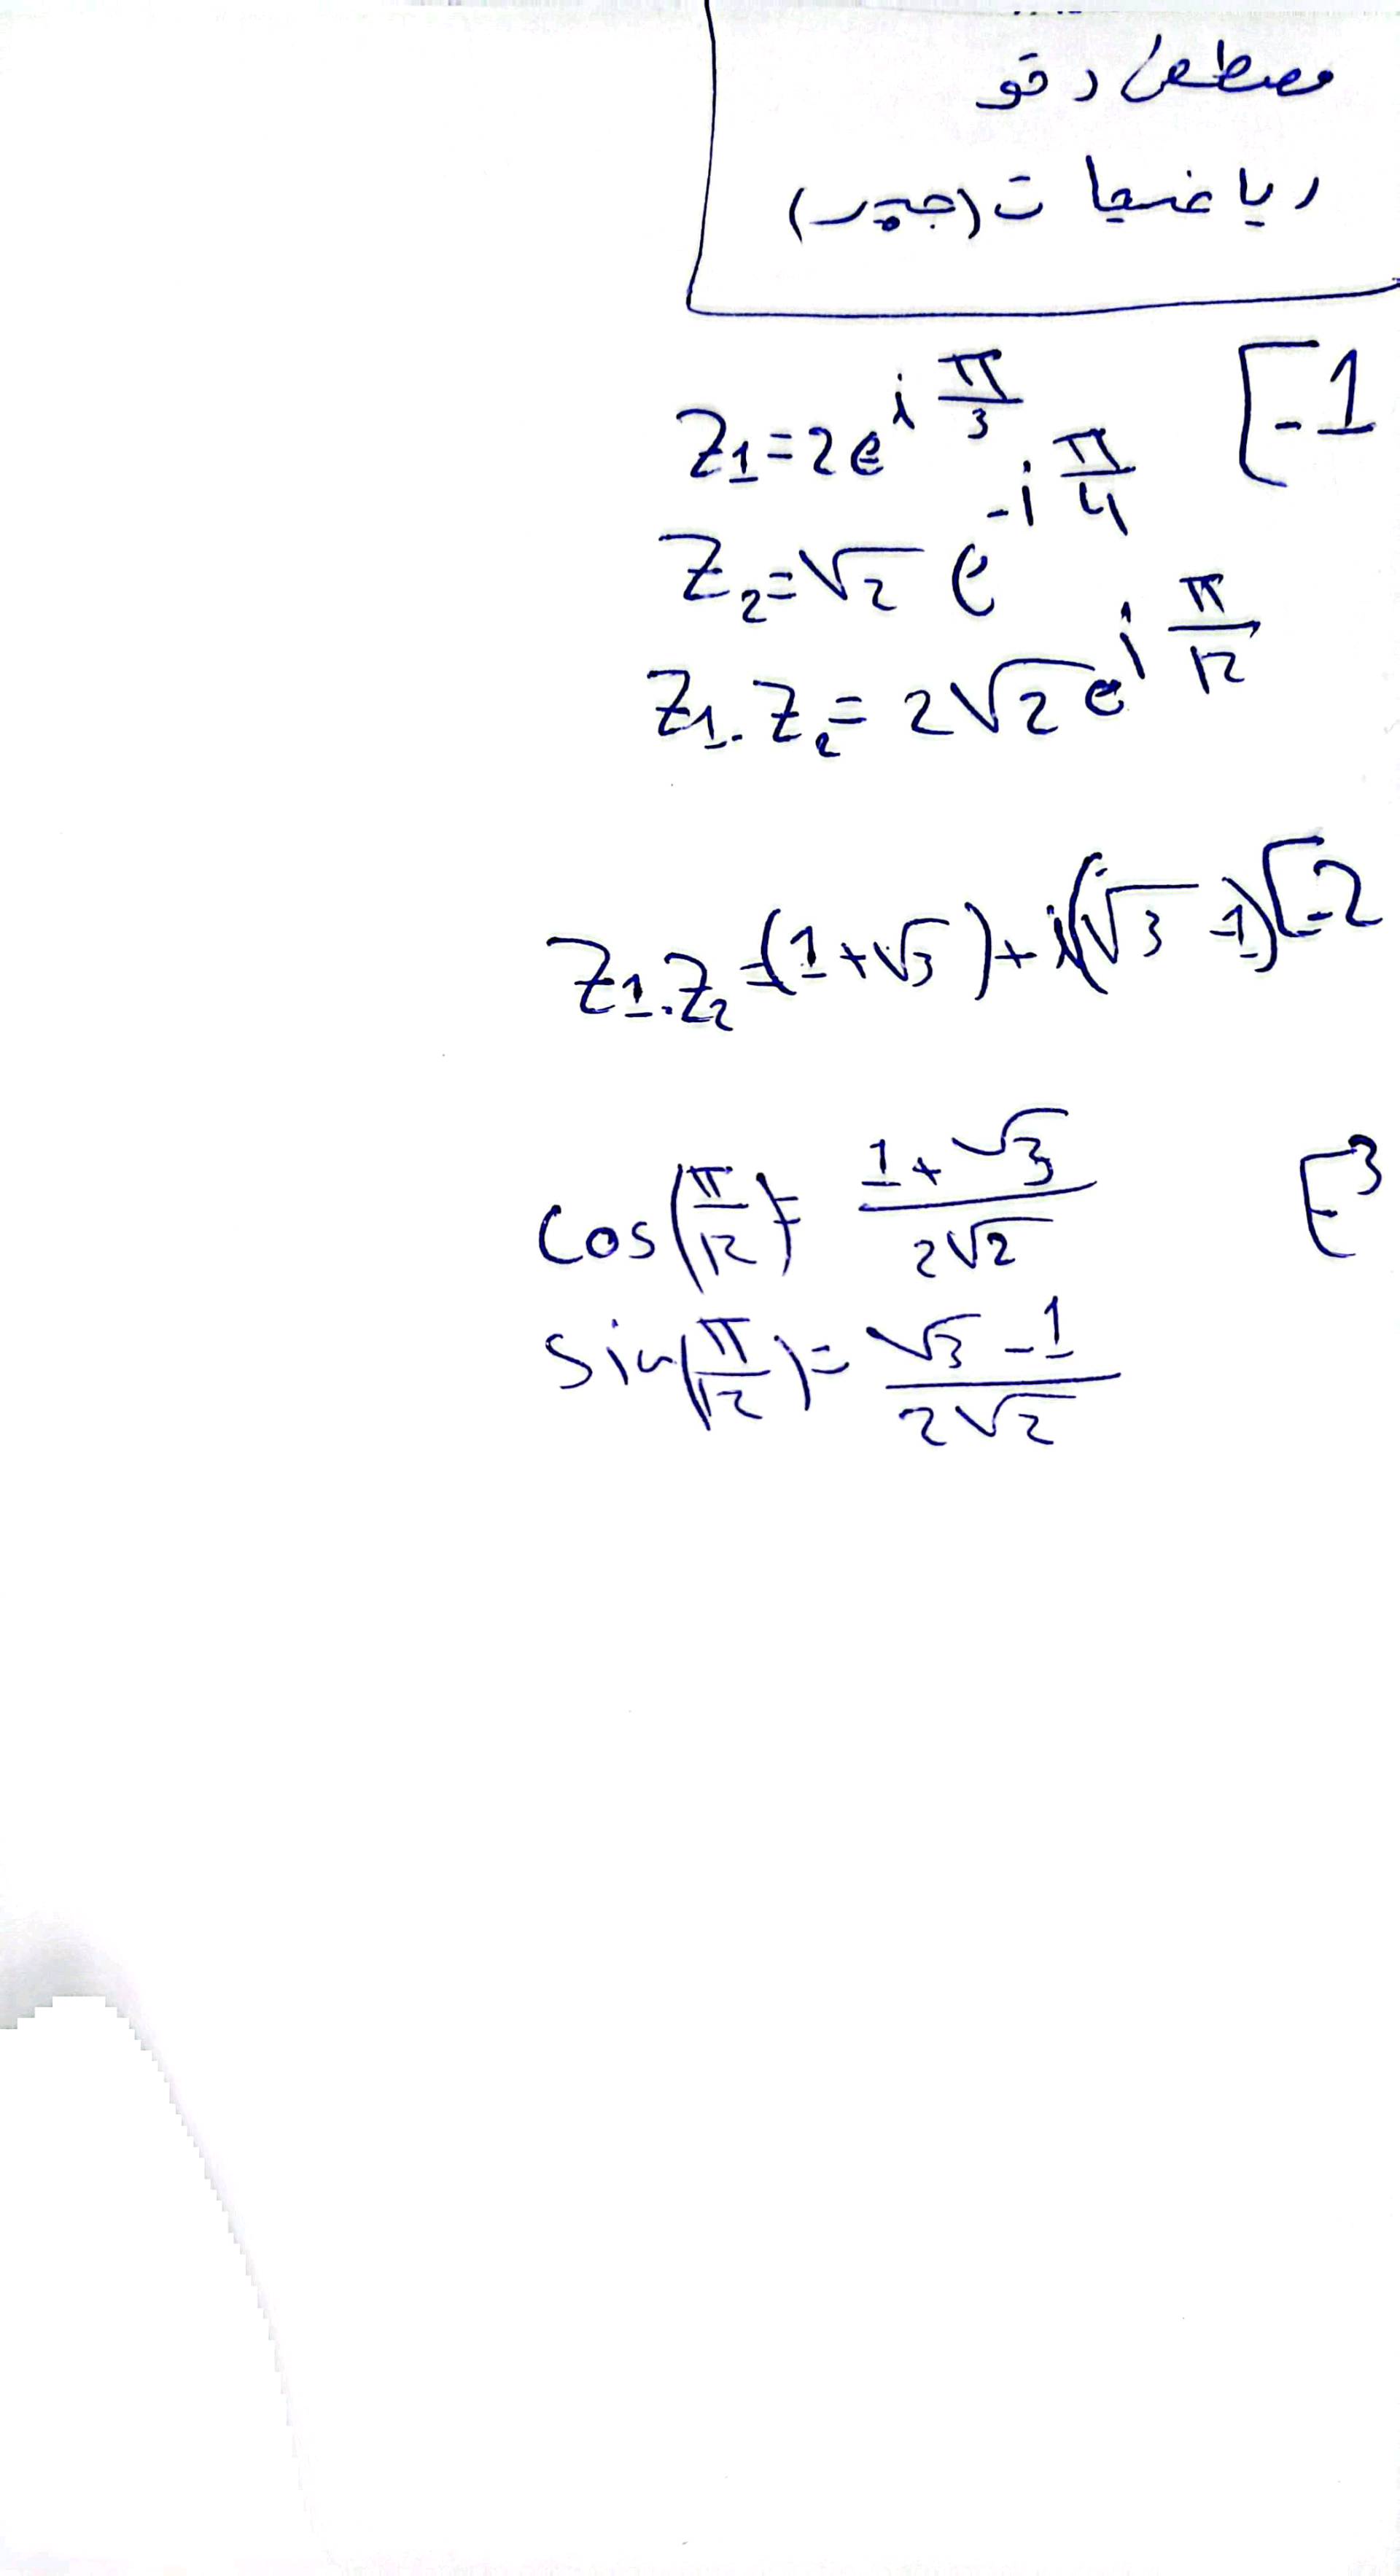 مصطفى دقو
رياضيات (جبر)
1-[
Z₁=2e^{i π/3}
Z₂=√2 e^{-i π/4}
Z₁.Z₂=2√2e^{i π/12}
2-[
Z₁.Z₂=(1+√3)+i(√3-1)
3-[
cos(π/12)=(1+√3)/(2√2)
sin(π/12)=(√3-1)/(2√2)